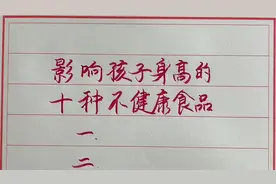 影响孩子身高的
十种不健康食品
一.
二